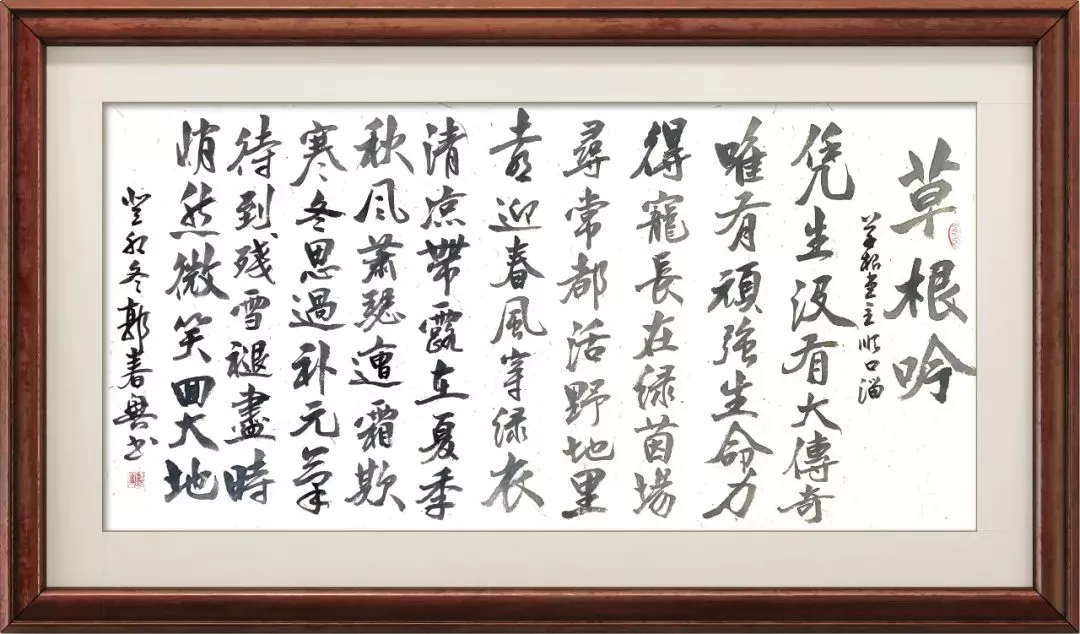 草根吟
堂主顺口溜
凭生没有大傳奇
唯有頑强生命力
得寵長在绿茵場
尋常都活野地里
喜迎春風穿绿衣
清凉帶露立夏季
秋风萧瑟遭霜欺
寒冬思過补元氣
待到殘雪褪盡時
悄然微笑回大地
癸卯冬郭春興书